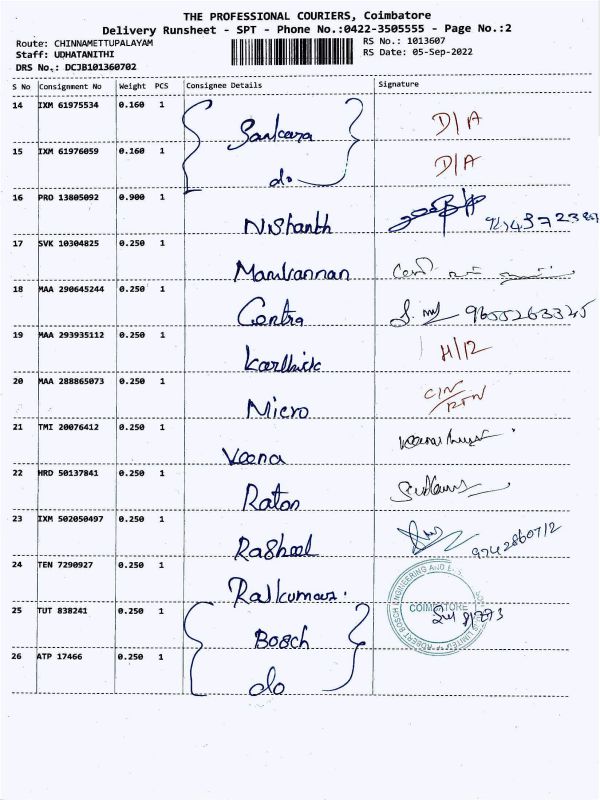 THE PROFESSIONAL COURIERS, Coimbatore
Delivery Runsheet - SPT - Phone No.:0422-3505555 - Page No.:2
Route: CHINNAMETTUPALAYAM
Staff: UDHATANITHI
DRS No.: DCJB101360702
RS No.: 1013607
RS Date: 05-Sep-2022
S No Consignment No Weight PCS Consignee Details Signature
14 IXM 61975534 0.160 1 Sankara D/A
15 IXM 61976059 0.160 1 do D/A
16 PRO 13805092 0.900 1 Nishanth
17 SVK 10304825 0.250 1 Manivannan
18 MAA 290645244 0.250 1 Centra 9655263345
19 MAA 293935112 0.250 1 Karthick H/12
20 MAA 288865073 0.250 1 Micro
21 TMI 20076412 0.250 1 Veena
22 HRD 50137841 0.250 1 Raton
23 IXM 502050497 0.250 1 Rasheel 9742860712
24 TEN 7290927 0.250 1 Rajkumar.
25 TUT 838241 0.250 1 Bosch COIMBATORE
26 ATP 17466 0.250 1 do